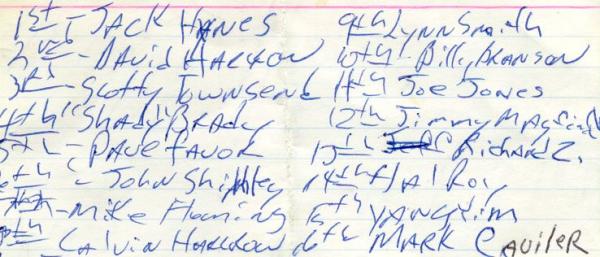 1st - JACK HANES
2nd - DAVID HARLOW
3rd - Scotty Townsend
4th "Shady" Brady
5th - Dave Favor
6th - John Shipley
7th - Mike Fleming
8th - Calvin Harlrow
9th Lynn Smith
10th - Billy Branson
11th Joe Jones
12th Jimmy
13th Richard Z.
14th Hal Roy
15th Yancy Tim
16th MARK Caviler